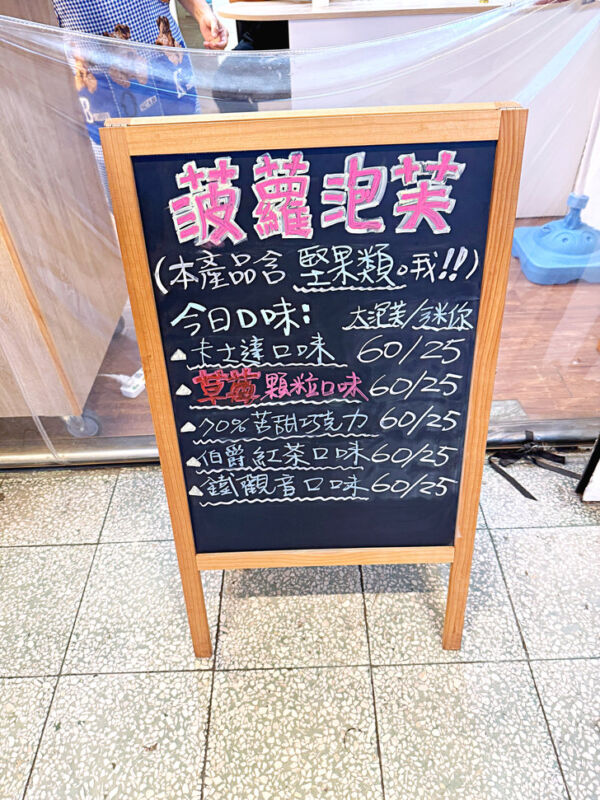 菠蘿泡芙
(本產品含堅果類。哦!!)
今日口味: 大泡芙/迷你
卡士達口味 60/25
草莓顆粒口味 60/25
70%苦甜巧克力 60/25
伯爵紅茶口味 60/25
鐵觀音口味 60/25